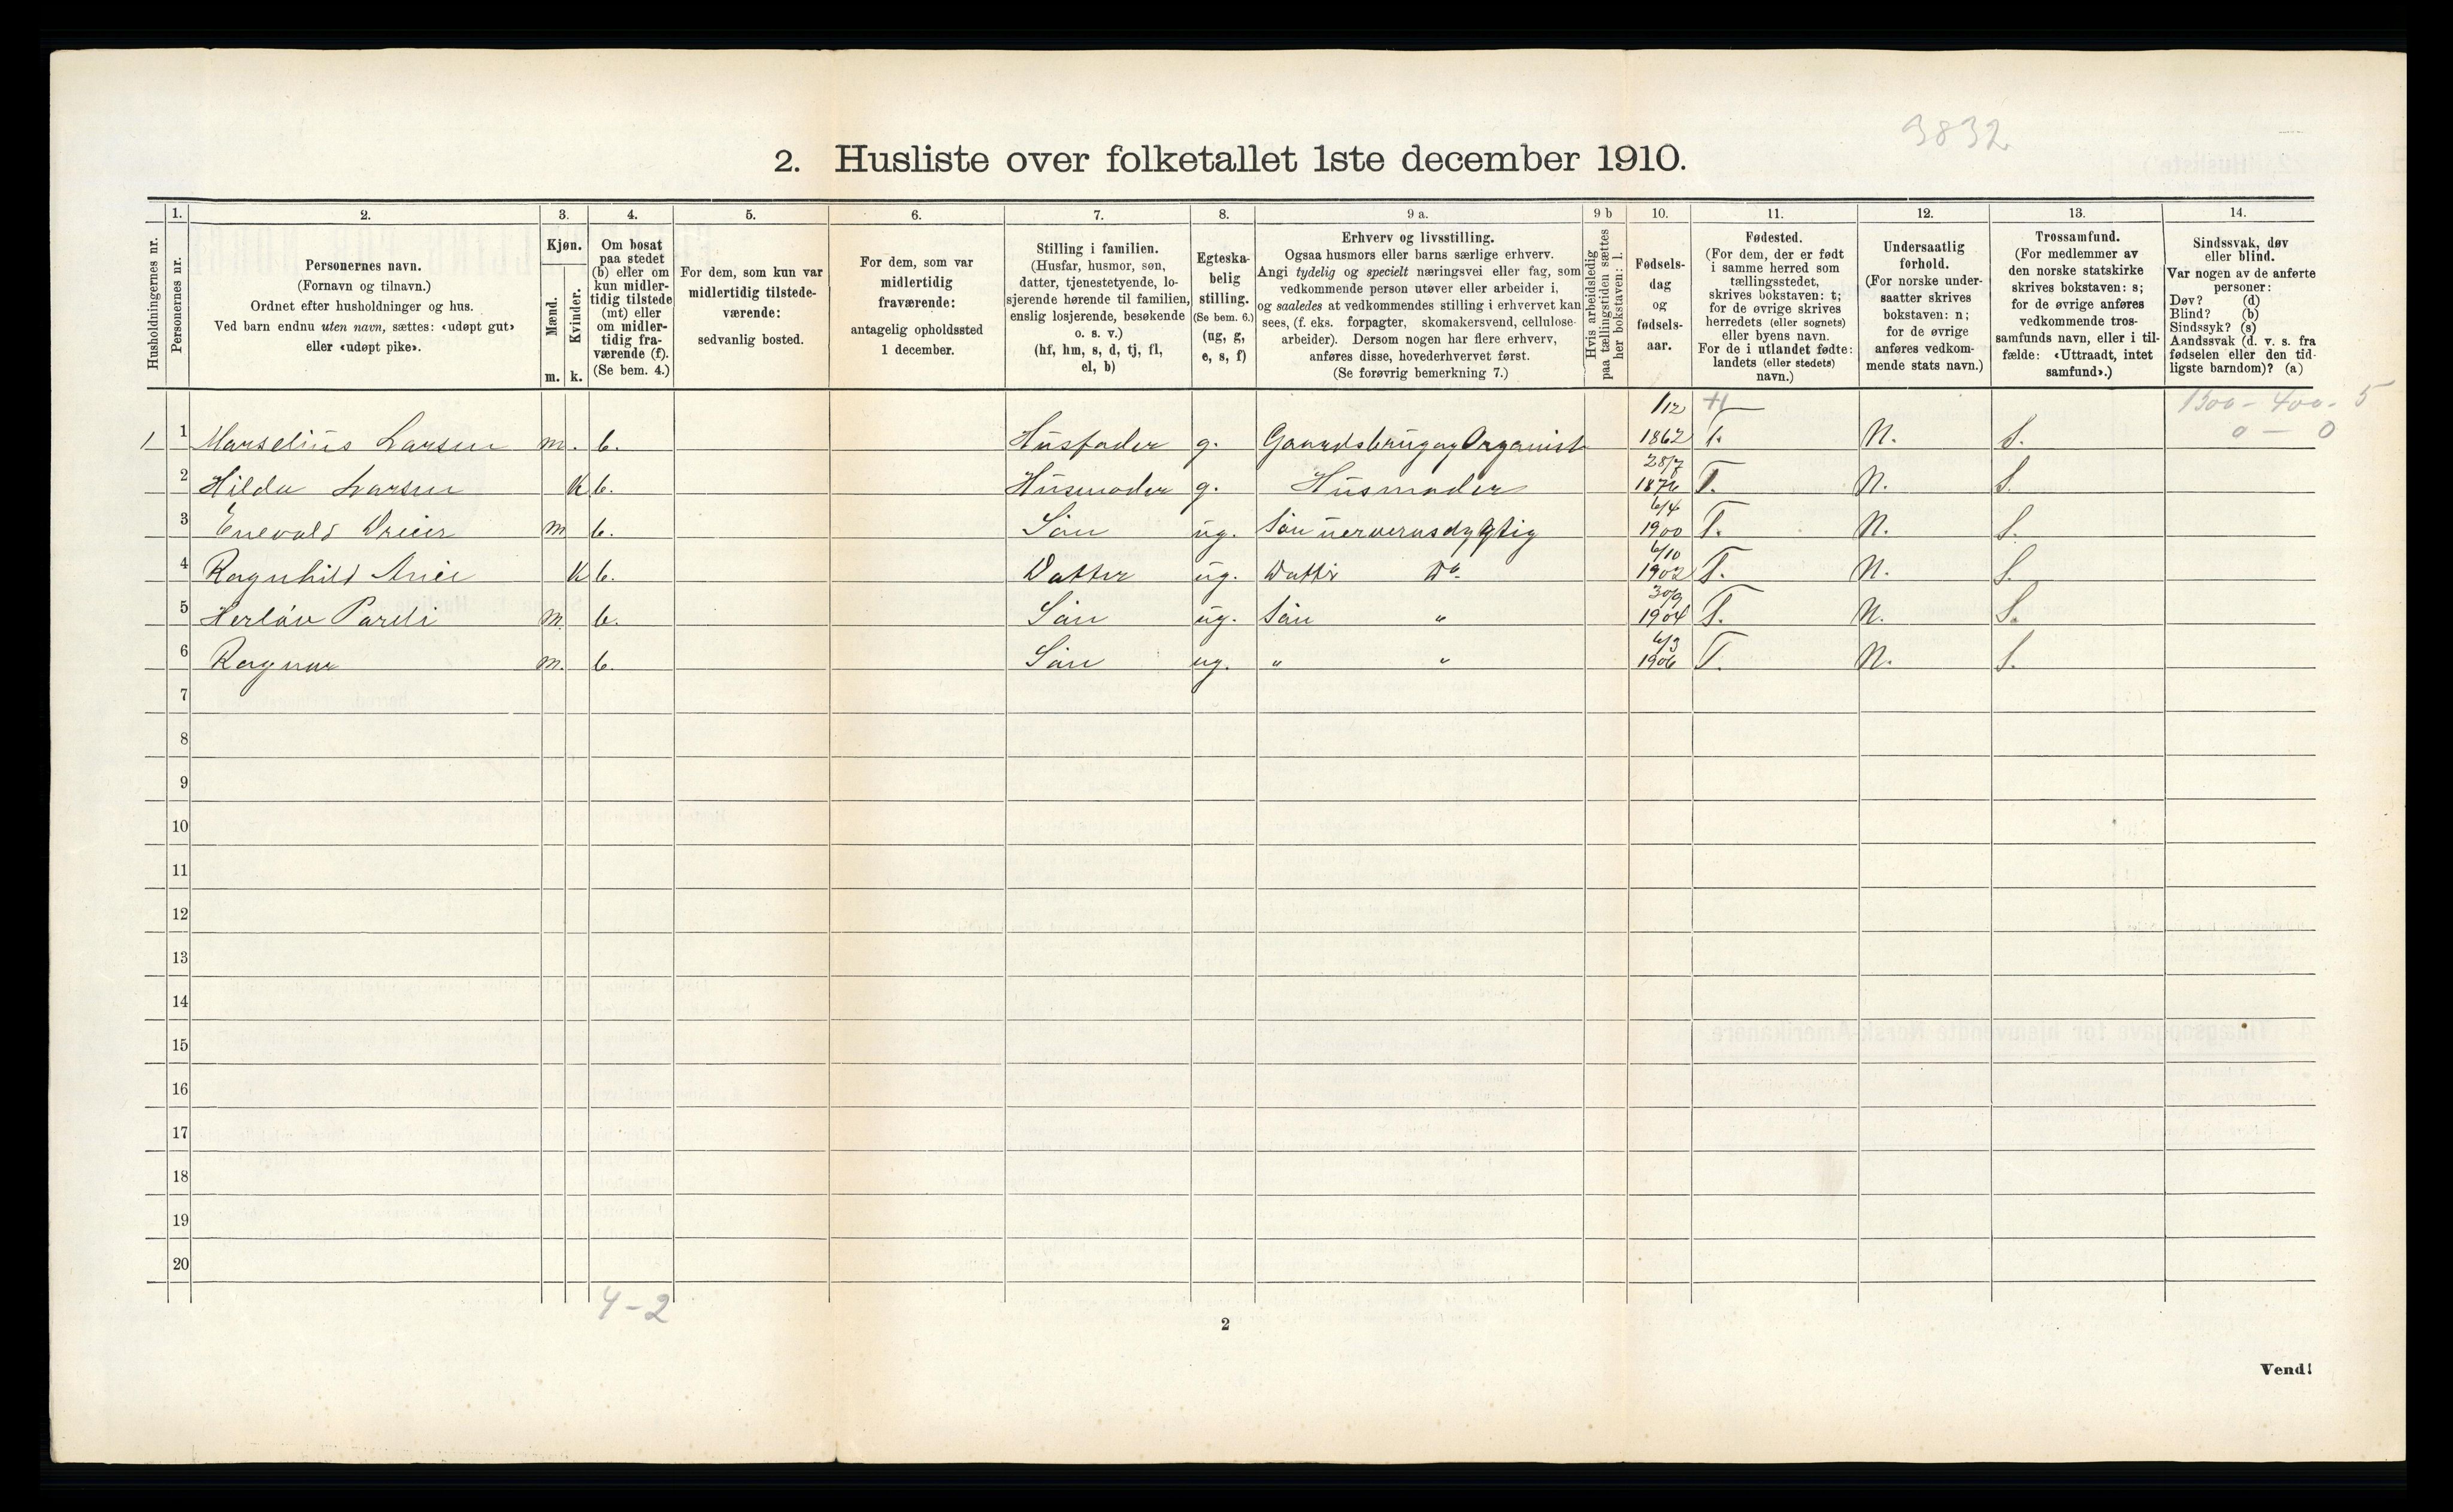 3832
2. Husliste over folketallet 1ste december 1910.
1. 2. 3. 4. 5. 6. 7. 8. 9 a. 9 b 10. 11. 12. 13. 14.
Husholdningernes nr.
Personernes nr.
Personernes navn.
(Fornavn og tilnavn.)
Ordnet efter husholdninger og hus.
Ved barn endnu uten navn, sættes: «udøpt gut»
eller «udøpt pike».
Kjøn.
Mænd.
Kvinder.
m. k.
Om bosat
paa stedet
(b) eller om
kun midler-
tidig tilstede
(mt) eller
om midler-
tidig fra-
værende (f).
(Se bem. 4.)
For dem, som kun var
midlertidig tilstede-
værende:
sedvanlig bosted.
For dem, som var
midlertidig
fraværende:
antagelig opholdssted
1 december.
Stilling i familien.
(Husfar, husmor, søn,
datter, tjenestetyende, lo-
sjerende hørende til familien,
enslig losjerende, besøkende
o. s. v.)
(hf, hm, s, d, tj, fl,
el, b)
Egteska-
belig
stilling.
(Se bem. 6.)
(ug, g,
e, s, f)
Erhverv og livsstilling.
Ogsaa husmors eller barns særlige erhverv.
Angi tydelig og specielt næringsvei eller fag, som
vedkommende person utøver eller arbeider i,
og saaledes at vedkommendes stilling i erhvervet kan
sees, (f. eks. forpagter, skomakersvend, cellulose-
arbeider). Dersom nogen har flere erhverv,
anføres disse, hovederhvervet først.
(Se forøvrig bemerkning 7.)
Hvis arbeidsledig
paa tællingstiden sættes
her bokstaven: l.
Fødsels-
dag
og
fødsels-
aar.
Fødested.
(For dem, der er født
i samme herred som
tællingsstedet,
skrives bokstaven: t;
for de øvrige skrives
herredets (eller sognets)
eller byens navn.
For de i utlandet fødte:
landets (eller stedets)
navn.)
Undersaatlig
forhold.
(For norske under-
saatter skrives
bokstaven: n;
for de øvrige
anføres vedkom-
mende stats navn.)
Trossamfund.
(For medlemmer av
den norske statskirke
skrives bokstaven: s;
for de øvrige anføres
vedkommende tros-
samfunds navn, eller i til-
fælde: «Uttraadt, intet
samfund».)
Sindssvak, døv
eller blind.
Var nogen av de anførte
personer:
Døv? (d)
Blind? (b)
Sindssyk? (s)
Aandssvak (d. v. s. fra
fødselen eller den tid-
ligste barndom)? (a)
1/12 1500 - 400 - 5
1 1 Marselius Larsen m. b. Husfader g. Gaardsbrug og Organist 1862 T. N. S. 0 - 0
28/7
2 Hilda Larsen K b. Husmoder g. Husmoder T. N. S.
6/4
3 Enevald m b. Sön ug. Sön 1900 T. N. S.
6/10
4 Ragnhild K b. Datter ug. Datter Do. 1902 T. N. S.
30/9
5 Herlöv m. b. Sön ug. Sön " 1904 T. N. S.
6/3
6 Ragnar m. b. Sön ug. " " 1906 T. N. S.
7
8
9
10
11
12
13
14
15
16
17
18
19
20
4-2
2
Vend!